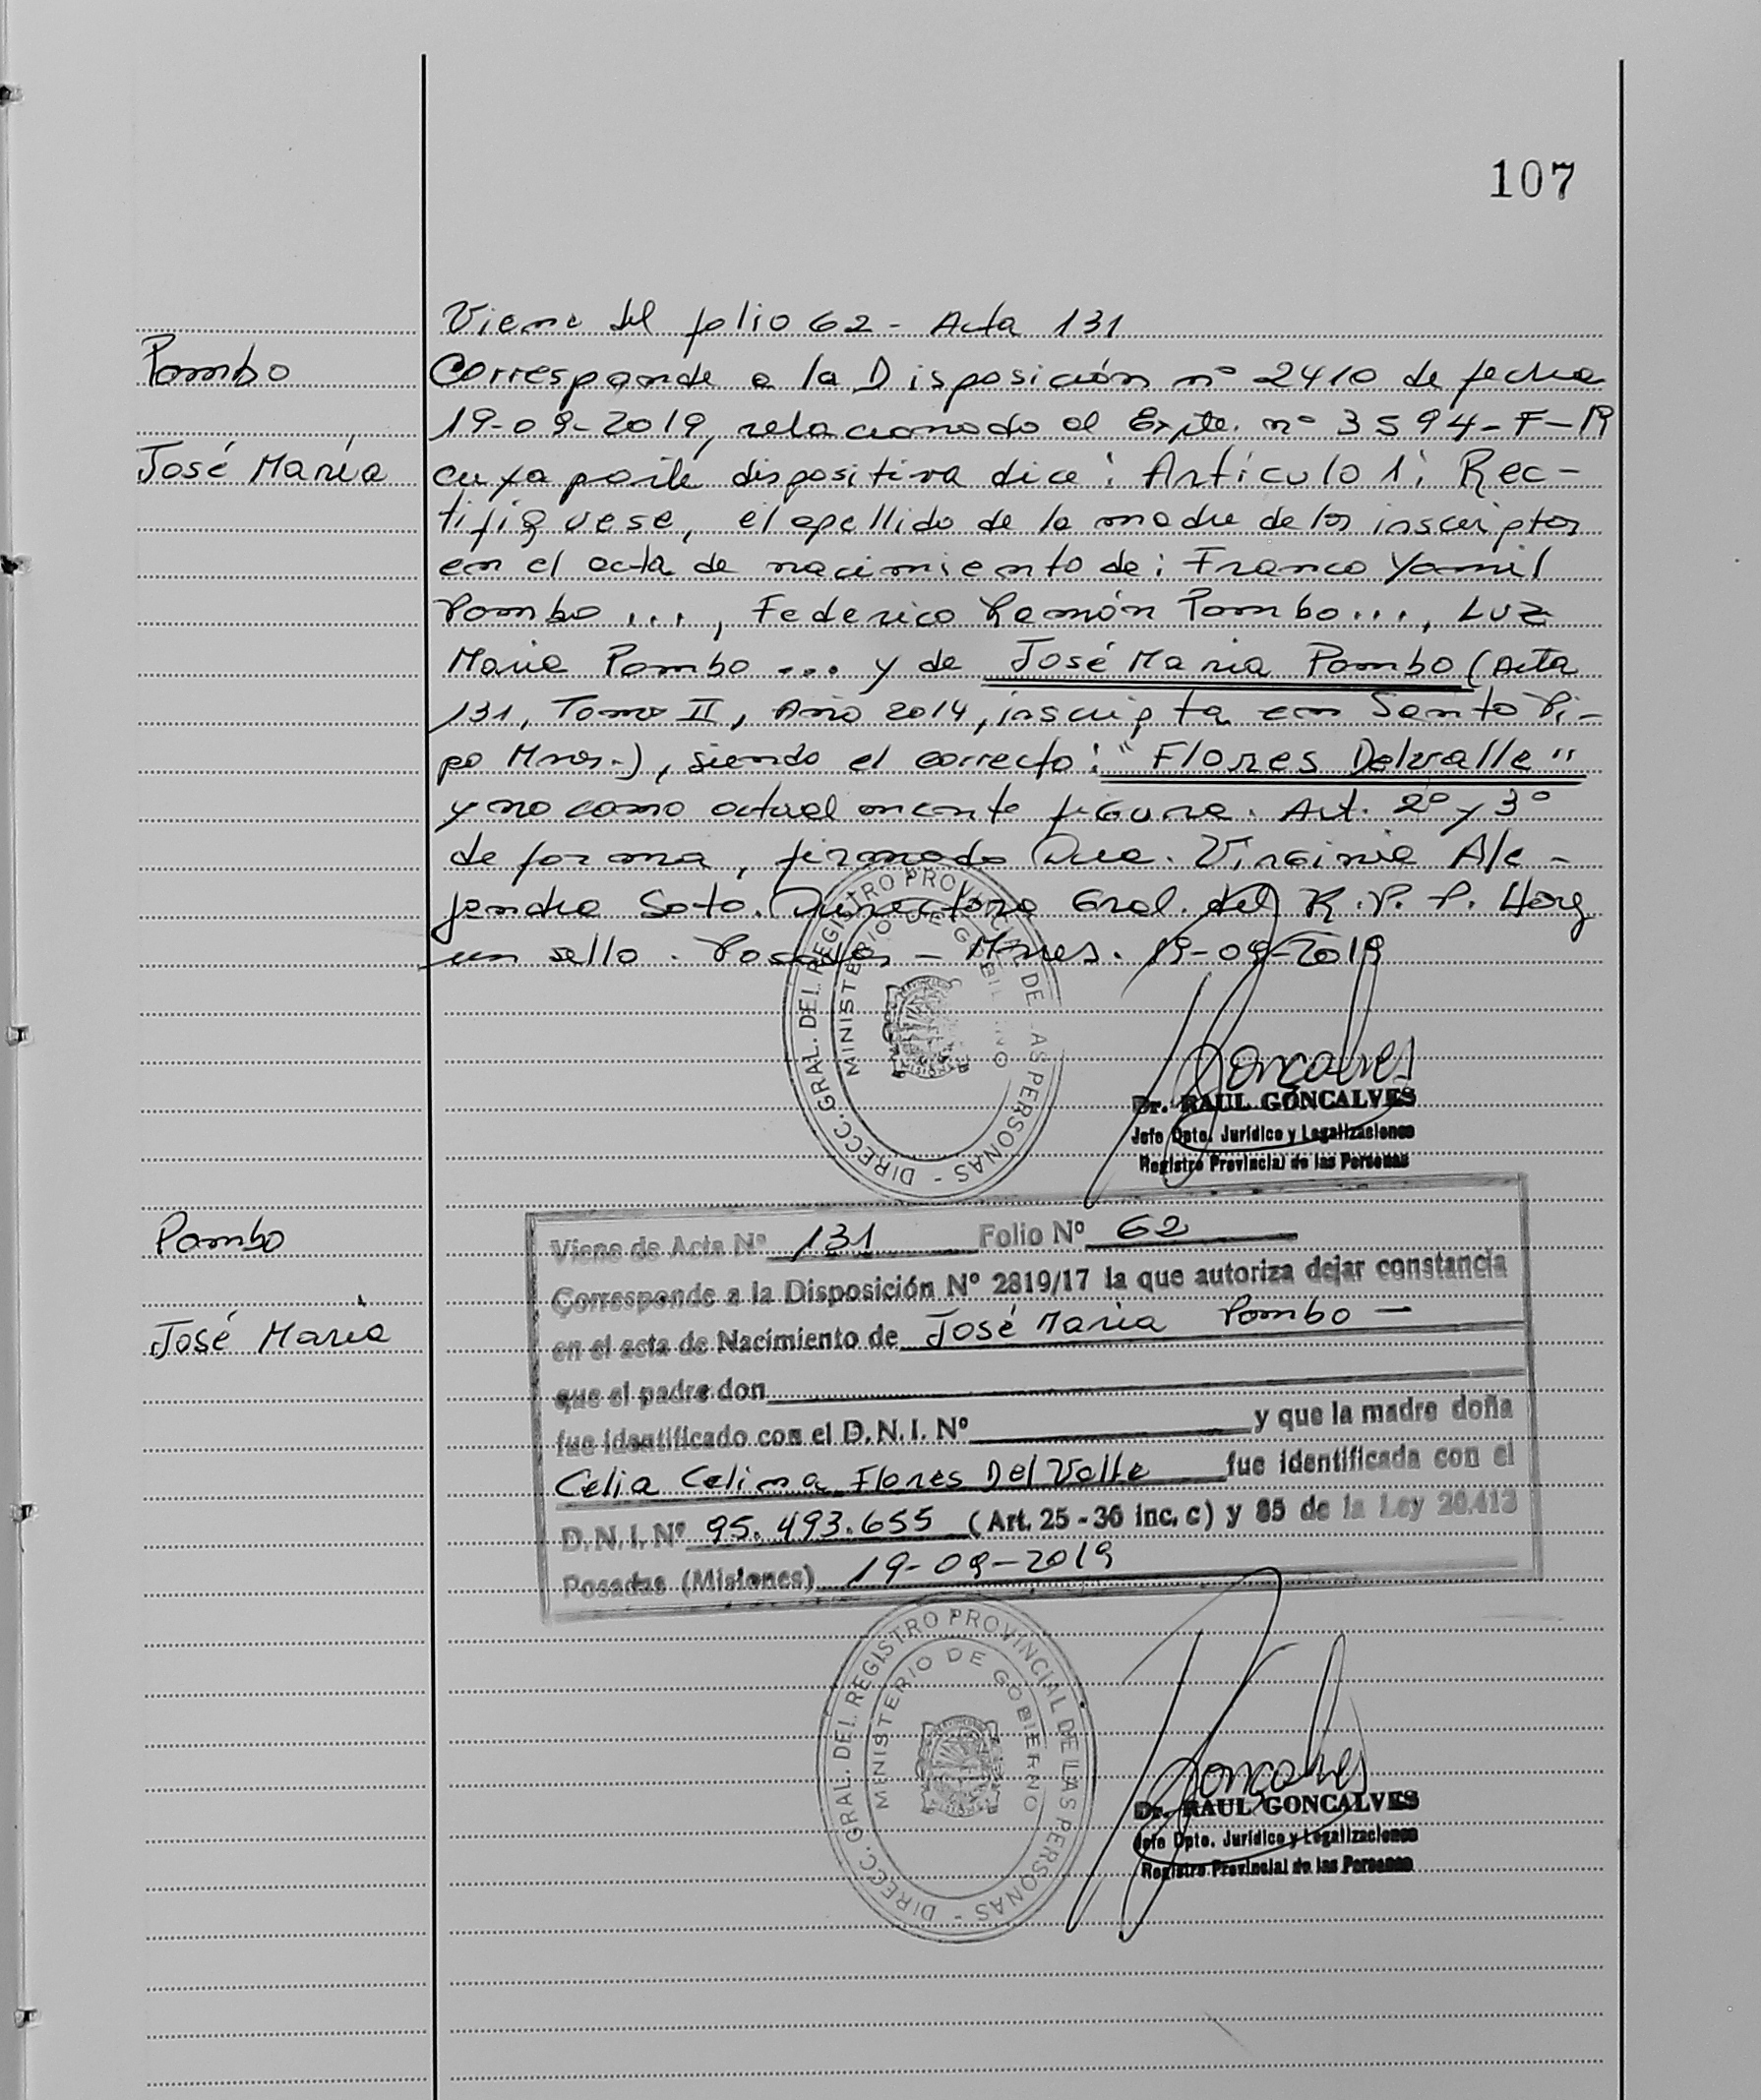 107
Viene del folio 62 - Acta 131
Pombo
Corresponde a la Disposición nº 2410 de fecha
19-09-2019, relacionado al Expte. nº 3594-F-19
José María
cuya parte dispositiva dice: Artículo 1: Rec-
tifiquese, el apellido de la madre de los inscriptos
en el acta de nacimiento de: Franco Yamil
Pombo ..., Federico Ramón Pombo..., Luz
Maria Pombo ... y de José Maria Pombo (Acta
131, Tomo II, Año 2014, inscripta en Santo Pi-
po Mnes.), siendo el correcto: "Flores Delvalle"
y no como actualmente figura. Art. 2º y 3º
de forma, firmado Dra. Virginia Ale-
jandra Soto. Directora Gral. del R.P.P. Hay
un sello. Posadas - Mnes. 19-09-2019
DIRECC. GRAL. DEL REGISTRO PROVINCIAL DE LAS PERSONAS -
MINISTERIO DE GOBIERNO
MISIONES
Goncalves
Dr. RAUL GONCALVES
Jefe Dpto. Jurídico y Legalizaciones
Registro Provincial de las Personas
Pombo
José María
Viene de Acta Nº 131 Folio Nº 62
Corresponde a la Disposición Nº 2819/17 la que autoriza dejar constancia
en el acta de Nacimiento de José Maria Pombo -
que el padre don
fue identificado con el D.N.I. Nº y que la madre doña
Celia Celina Flores Del Valle fue identificada con el
D.N.I. Nº 95.493.655 (Art. 25 - 36 inc. c) y 85 de la Ley 26.413
Posadas (Misiones) 19-09-2019
DIRECC. GRAL. DEL REGISTRO PROVINCIAL DE LAS PERSONAS -
MINISTERIO DE GOBIERNO
Goncalves
Dr. RAUL GONCALVES
Jefe Dpto. Jurídico y Legalizaciones
Registro Provincial de las Personas